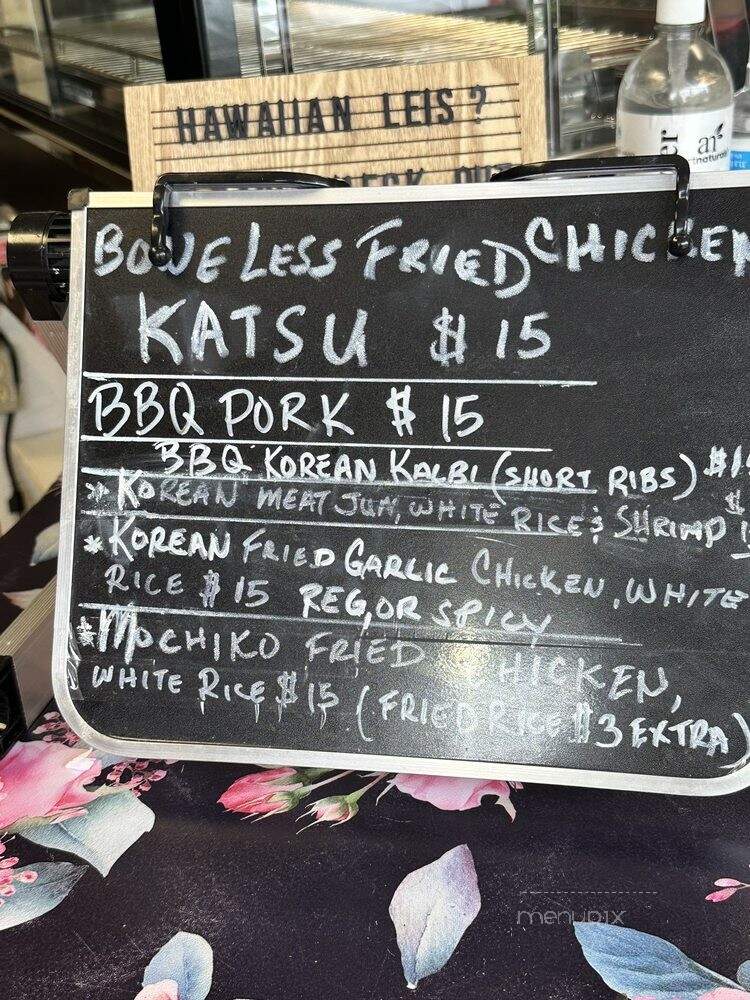 HAWAIIAN LEIS?
BONELESS FRIED CHICKEN
KATSU $15
BBQ PORK $15
BBQ KOREAN KALBI (SHORT RIBS)
* KOREAN MEAT JUN, WHITE RICE & SHRIMP $
* KOREAN FRIED GARLIC CHICKEN, WHITE
RICE $15 REG, OR SPICY
* MOCHIKO FRIED CHICKEN,
WHITE RICE $15 (FRIED RICE $3 EXTRA)
menupix